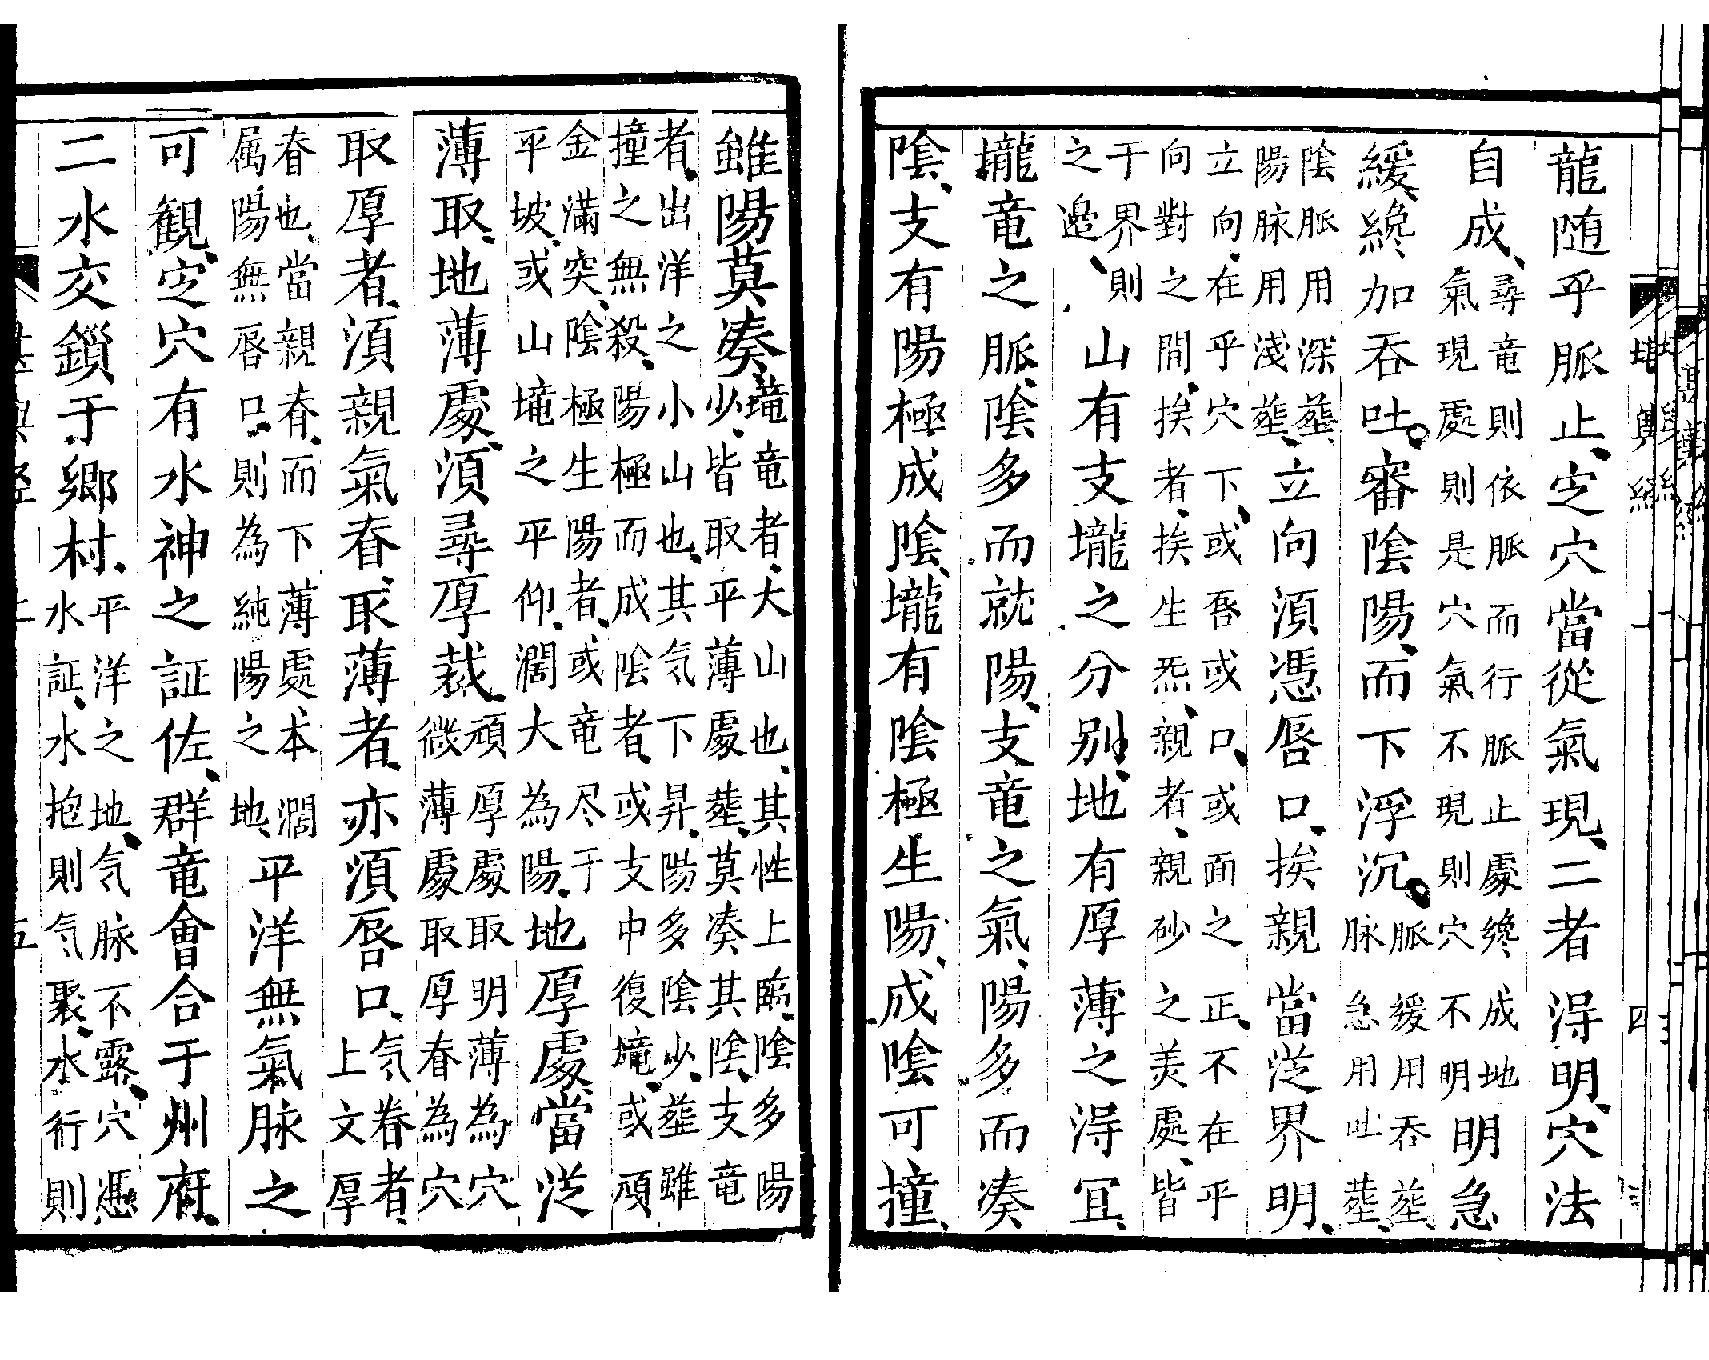 龍随乎脈止、定穴當從氣現、二者淂明、穴法
自成、
尋竜則依脈而行脈止處纔成地
氣現處則是穴氣不現則穴不明
明急
緩、纔加吞吐、審陰陽、而下浮沉、
脈緩用吞塟
脉急用吐塟、
陰脈用深塟
陽脉用淺塟、
立向湏憑唇口、挨親當從界明、
立向、在乎穴下、或唇或口、或面之正、不在乎
向對之間、挨者、挨生炁、親者、親砂之美處、皆
于界則
之邉、
山有支壠之分别、地有厚薄之淂宜、
壠竜之脈、陰多而就陽、支竜之氣、陽多而凑
陰、支有陽極成陰、壠有陰極生陽、成陰可撞、
堪輿經
四
雖陽莫凑、
壠竜者、大山也、其性上臨、陰多陽
少、皆取平薄處塟、莫凑其陰、支竜
者、出洋之小山也、其気下昇、陽多陰少、塟雖
撞之無殺、陽極而成陰者、或支中復壠、或頑
金滿突、陰極生陽者、或竜尽于
平坡、或山壠之平仰、濶大為陽、
地厚處當從
薄取、地薄薄處、湏尋厚裁、
頑厚處取明薄為穴
微薄處取厚脊為穴
取厚者、湏親氣脊、取薄者、亦湏唇口、
気脊者、
上文厚
脊也、當親脊、而下薄處本濶
属陽無唇口、則為純陽之地、
平洋無氣脉之
可観、定穴有水神之証佐、群竜會合于州府、
二水交鎖于郷村、
平洋之地、気脉不露、穴憑
水証、水抱則気聚、水行則